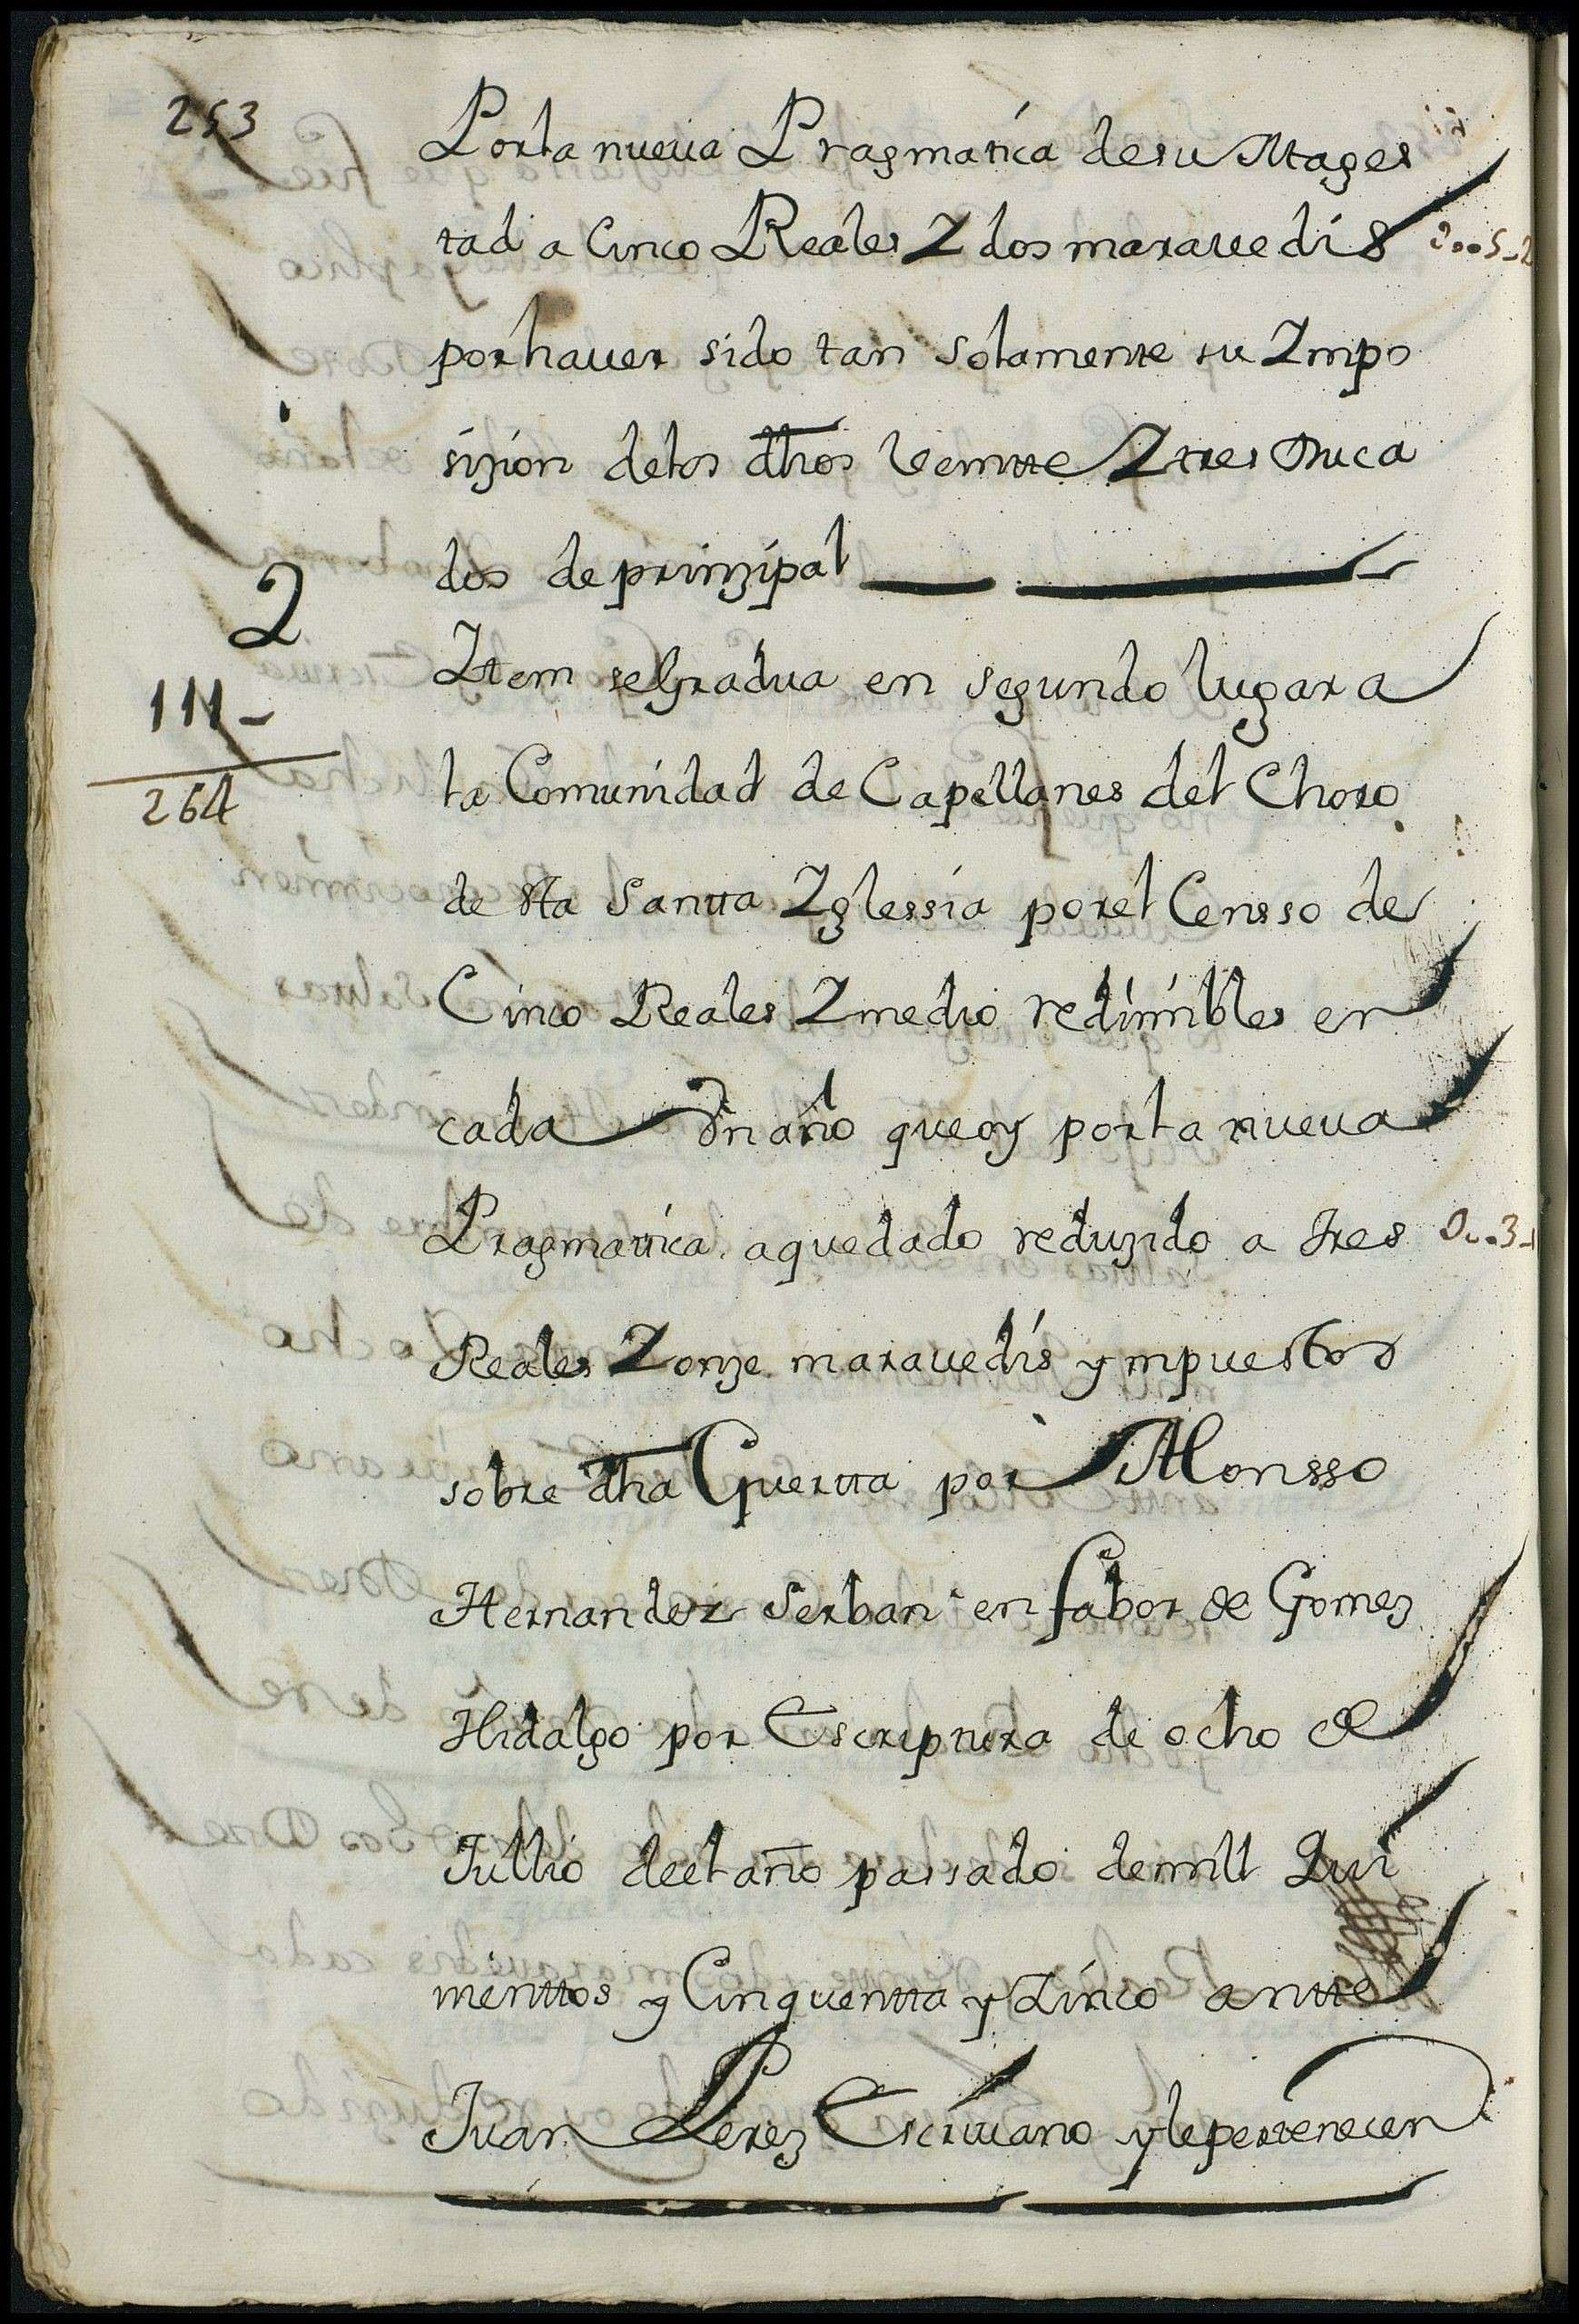 253
Por la nueua Pragmatica de su Mages
tad a Cinco Reales Y dos marauedis 2..5-2
por hauer sido tan solamente su Ympo
sizion de los dhos Veintte Y tres Duca
dos de prinzipal
2
Ytem se Gradua en segundo lugar a
111-
la Comunidad de Capellanes del Choro
264
de Sta Santta Yglessia por el Censso de
Cinco Reales Y medio redimibles en
cada Vn año que oy por la nueua
Pragmattica a quedado reduzido a tres 0..3-
Reales Y onze marauedis ympuestos
sobre dha Guertta por Alonsso
Hernandez Serban en fabor de Gomez
Hidalgo por Escriptura de ocho de
Jullio de el año passado de mill Qui
nienttos y Cinquentta y Zinco antte
Juan Perez Escriuano y le pertenecen